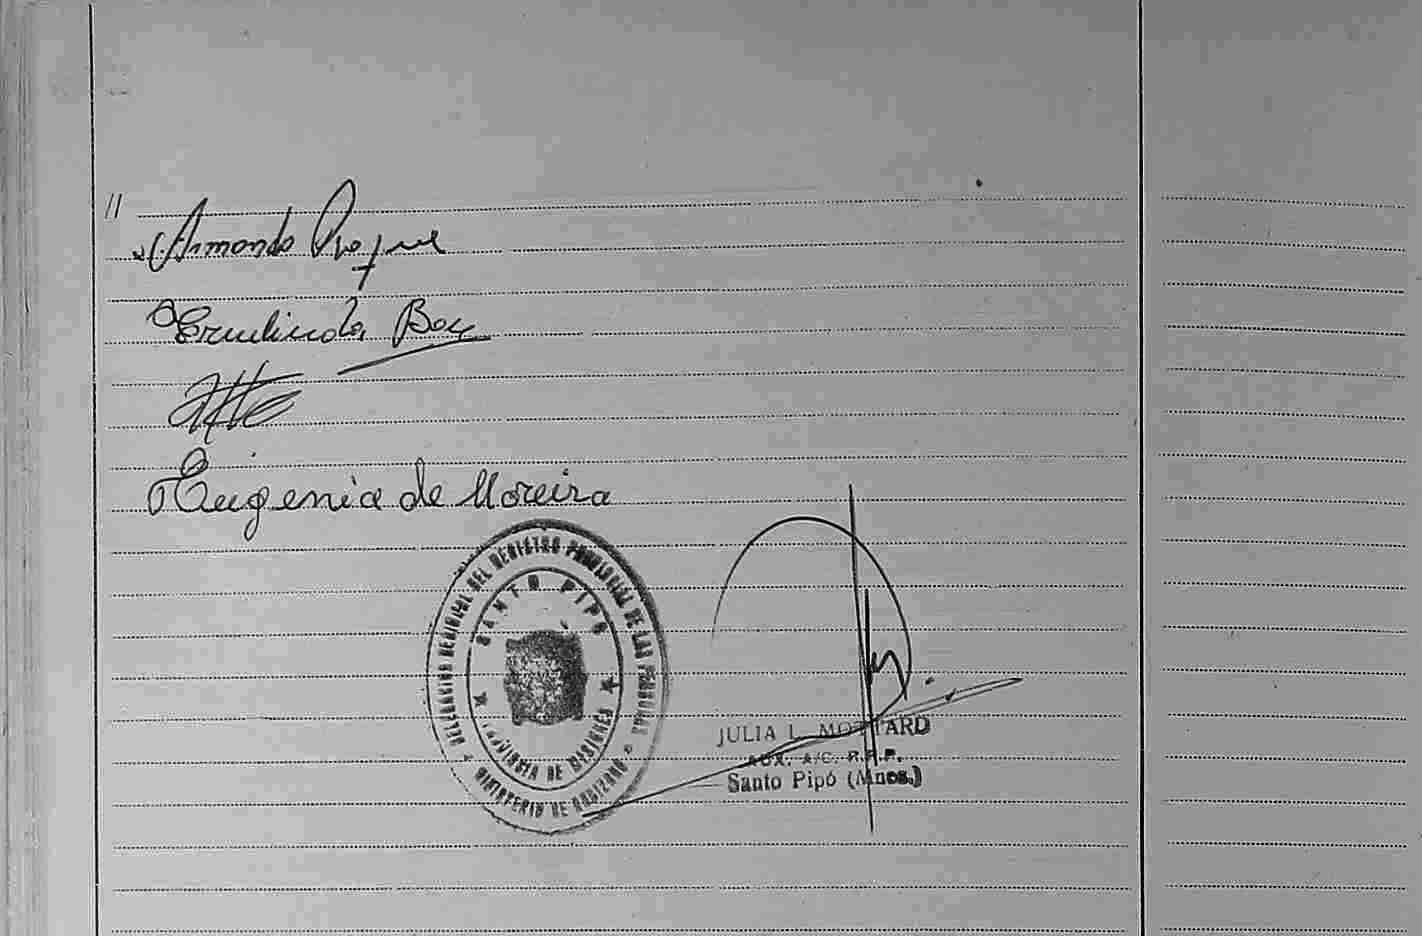 //
Armando
Ermelinda
Eugenia de Moreira
DELEGACION REGIONAL DEL REGISTRO PROVINCIAL DE LAS PERSONAS
SANTO PIPO
PROVINCIA DE MISIONES
MINISTERIO DE GOBIERNO
JULIA L. MOTTARD
AUX. A/C. R.P.P.
Santo Pipó (Mnes.)